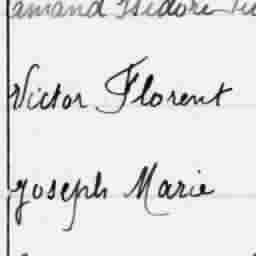 amand Isidore
Victor Florent
Joseph Marie